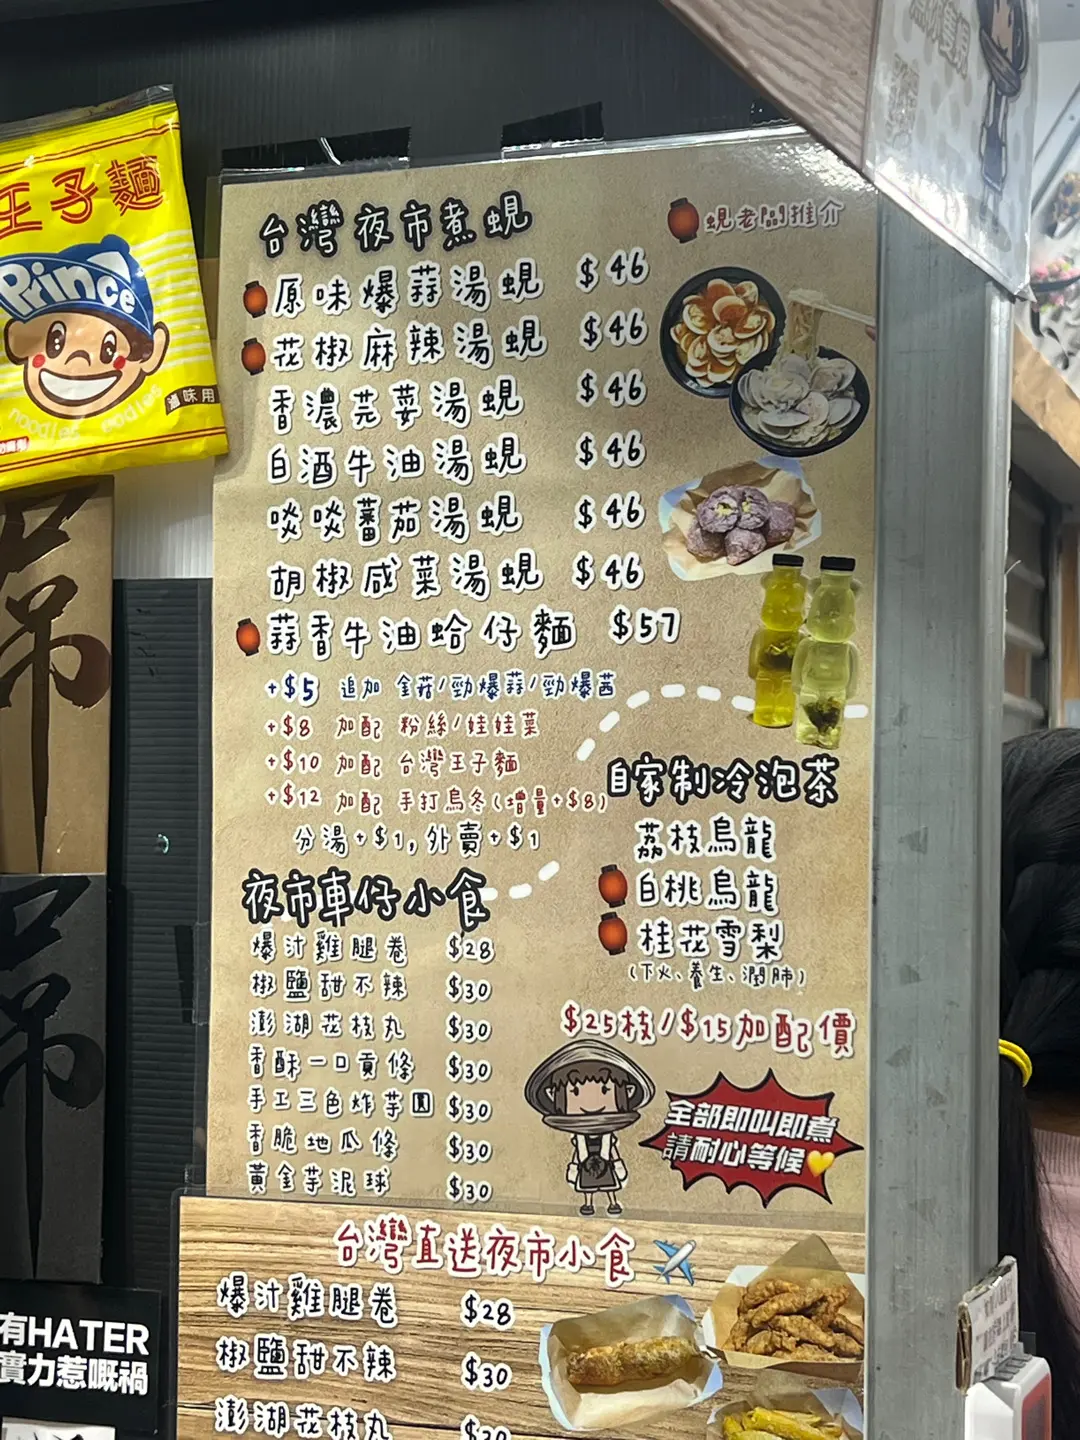 王子麵
Prince
noodles noodles
滷味用
台灣夜市煮蜆
蜆老闆推介
原味爆蒜湯蜆 $46
花椒麻辣湯蜆 $46
香濃芫荽湯蜆 $46
白酒牛油湯蜆 $46
啖啖蕃茄湯蜆 $46
胡椒咸菜湯蜆 $46
蒜香牛油蛤仔麵 $57
+$5 追加 金菇/勁爆蒜/勁爆茜
+$8 加配 粉絲/娃娃菜
+$10 加配 台灣王子麵
+$12 加配 手打烏冬(增量+$8)
分湯+$1,外賣+$1
自家制冷泡茶
荔枝烏龍
白桃烏龍
桂花雪梨
(下火、養生、潤肺)
$25枝/$15加配價
夜市車仔小食
爆汁雞腿卷 $28
椒鹽甜不辣 $30
澎湖花枝丸 $30
香酥一口貢條 $30
手工三色炸芋圓 $30
香脆地瓜條 $30
黃金芋泥球 $30
全部即叫即煮
請耐心等候
台灣直送夜市小食
爆汁雞腿卷 $28
椒鹽甜不辣 $30
澎湖花枝丸 $30
有HATER
實力惹嘅禍